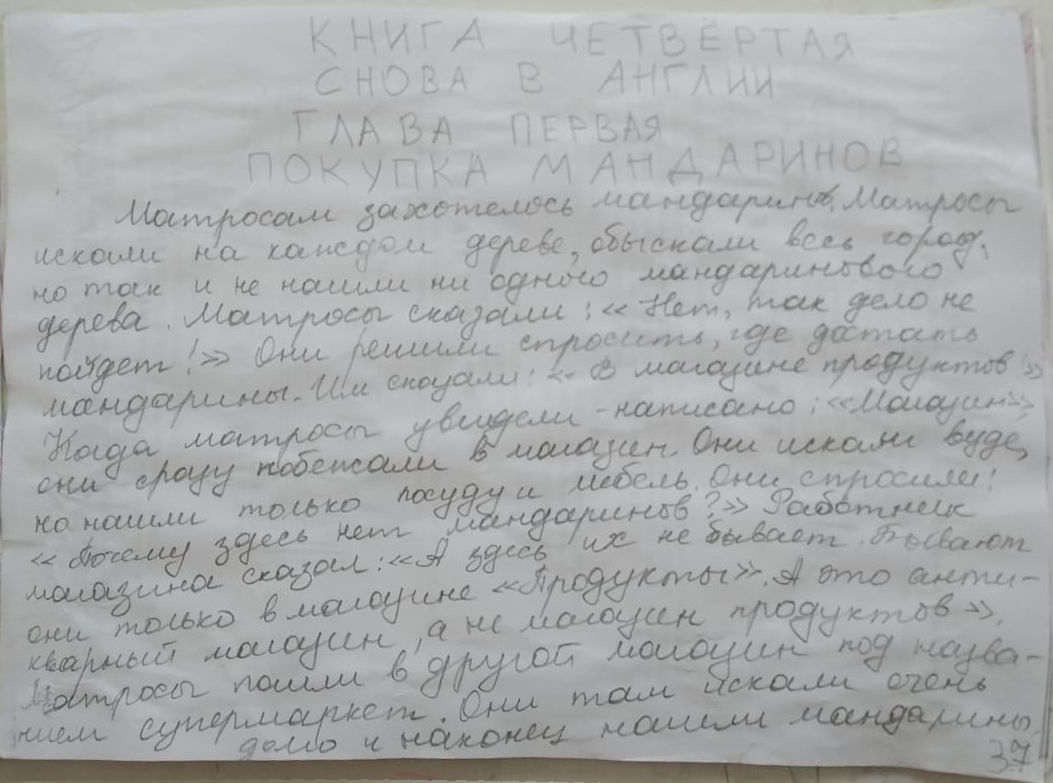 КНИГА ЧЕТВЁРТАЯ
СНОВА В АНГЛИИ
ГЛАВА ПЕРВАЯ
ПОКУПКА МАНДАРИНОВ
Матросам захотелось мандаринов. Матросы
искали на каждом дереве, обыскали весь город,
но так и не нашли ни одного мандаринового
дерева. Матросы сказали: «Нет, так дело не
пойдет!» Они решили спросить, где достать
мандарины. Им сказали: «В магазине продуктов!»
Когда матросы увидели - написано: «Магазин»,
они сразу побежали в магазин. Они искали вузде,
но нашли только посуду и мебель. Они спросили:
«Почему здесь нет мандаринов?» Работник
магазина сказал: «А здесь их не бывает. Бывают
они только в магазине «Продукты». А это анти-
кварный магазин, а не магазин продуктов».
Матросы пошли в другой магазин под назва-
нием супермаркет. Они там искали очень
долго и наконец нашли мандарины.
37